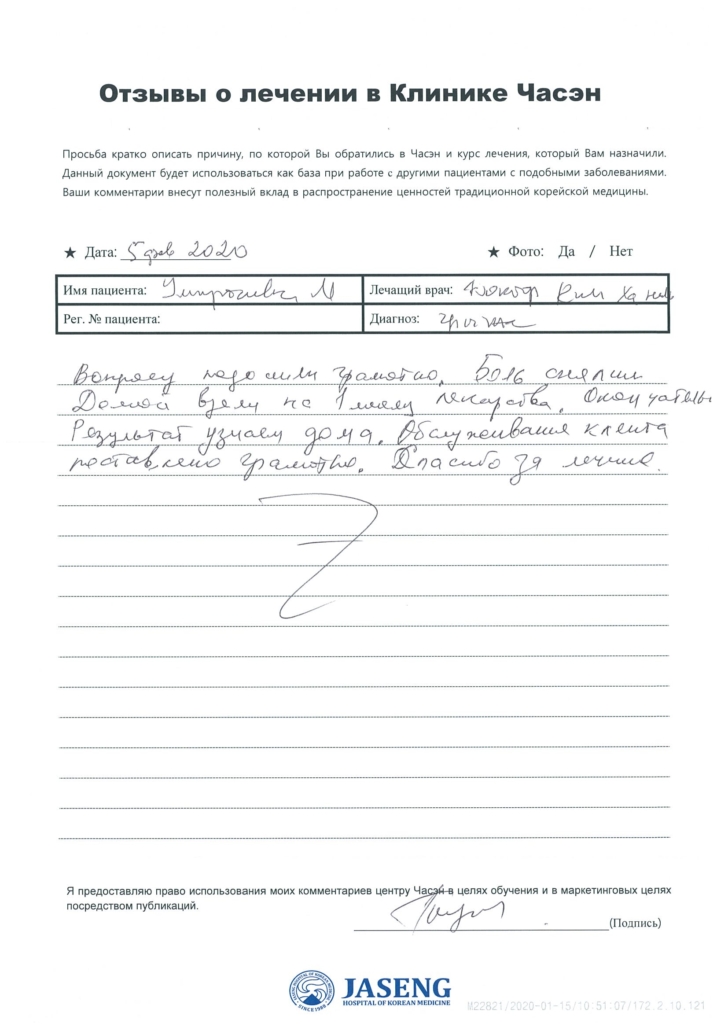 Отзывы о лечении в Клинике Часэн
Просьба кратко описать причину, по которой Вы обратились в Часэн и курс лечения, который Вам назначили.
Данный документ будет использоваться как база при работе с другими пациентами с подобными заболеваниями.
Ваши комментарии внесут полезный вклад в распространение ценностей традиционной корейской медицины.
★ Дата: 5 фев 2020 ★ Фото: Да / Нет
Имя пациента: М Лечащий врач: Доктор Ким Ха
Рег. № пациента: Диагноз: грыжа
Вопросы грамотно. Боль сняли
Домой взяли на 1 месяц лекарства. Окончательн
Результат узнаем дома. Обслуживания клиента
поставлено грамотно. Спасибо за лечение.
Я предоставляю право использования моих комментариев центру Часэн в целях обучения и в маркетинговых целях
посредством публикаций.
(Подпись)
JASENG
HOSPITAL OF KOREAN MEDICINE
SINCE1988
M22821/2020-01-15/10:51:07/172.2.10.121